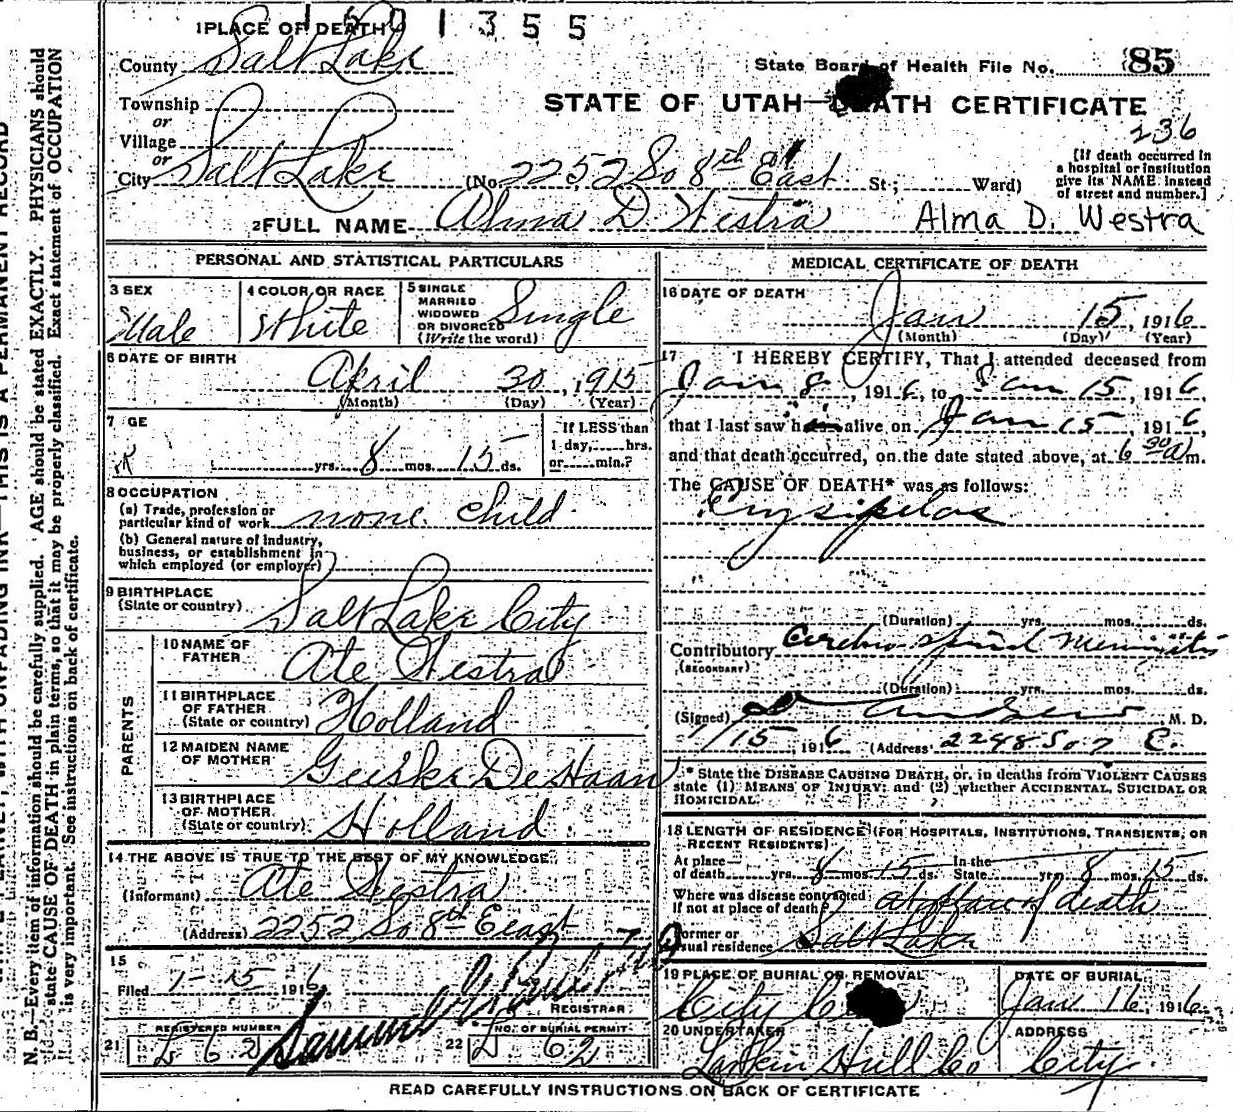 1 5 0 1 3 5 5
1 PLACE OF DEATH
County Salt Lake
State Board of Health File No. 85
Township
or
Village
or
City Salt Lake
STATE OF UTAH—DEATH CERTIFICATE
236
(No. 2252 So 8th East St; Ward)
[If death occurred in
a hospital or institution
give its NAME instead
of street and number.]
2 FULL NAME Alma D Westra Alma D. Westra
PERSONAL AND STATISTICAL PARTICULARS
3 SEX
Male
4 COLOR OR RACE
White
5 SINGLE
MARRIED
WIDOWED
OR DIVORCED
(Write the word)
Single
6 DATE OF BIRTH
April 30, 1915
(Month) (Day) (Year)
7 GE
yrs. 8 mos. 15 ds.
If LESS than
1 day, hrs.
or min.?
8 OCCUPATION
(a) Trade, profession or
particular kind of work none. Child
(b) General nature of Industry,
business, or establishment in
which employed (or employer)
9 BIRTHPLACE
(State or country) Salt Lake City
PARENTS
10 NAME OF
FATHER Ate Westra
11 BIRTHPLACE
OF FATHER
(State or country) Holland
12 MAIDEN NAME
OF MOTHER Geeske De Haan
13 BIRTHPLACE
OF MOTHER
(State or country) Holland
14 THE ABOVE IS TRUE TO THE BEST OF MY KNOWLEDGE
(Informant) Ate Westra
(Address) 2252 So 8th Eeast
15
Filed 1-15 1916
REGISTRAR
21 REGISTERED NUMBER
L 62
22 NO. OF BURIAL PERMIT
L 62
MEDICAL CERTIFICATE OF DEATH
16 DATE OF DEATH
Jan 15, 1916
(Month) (Day) (Year)
17 I HEREBY CERTIFY, That I attended deceased from
Jan 8, 1916, to Jan 15, 1916,
that I last saw him alive on Jan 15, 1916,
and that death occurred, on the date stated above, at 6 30 a m.
The CAUSE OF DEATH* was as follows:
Erysipelas
(Duration) yrs. mos. ds.
Contributory Cerebro Spinal Meningitis
(SECONDARY)
(Duration) yrs. mos. ds.
(Signed) Andrew M. D.
1/15, 1916 (Address) 2248 So 7 E.
* State the DISEASE CAUSING DEATH, or, in deaths from VIOLENT CAUSES
state (1) MEANS OF INJURY; and (2) whether ACCIDENTAL, SUICIDAL OR
HOMICIDAL.
18 LENGTH OF RESIDENCE (FOR HOSPITALS, INSTITUTIONS, TRANSIENTS, OR
RECENT RESIDENTS)
At place
of death yrs. 8 mos. 15 ds. In the
State yrs. 8 mos. 15 ds.
Where was disease contracted
If not at place of death? at place of death
Former or
usual residence Salt Lake
19 PLACE OF BURIAL OR REMOVAL
City
DATE OF BURIAL
Jan 16, 1916
20 UNDERTAKER
Larkin Hull Co
ADDRESS
City
READ CAREFULLY INSTRUCTIONS ON BACK OF CERTIFICATE
N. B.—Every item of information should be carefully supplied. AGE should be stated EXACTLY. PHYSICIANS should
state CAUSE OF DEATH in plain terms, so that it may be properly classified. Exact statement of OCCUPATION
is very important. See instructions on back of certificate.